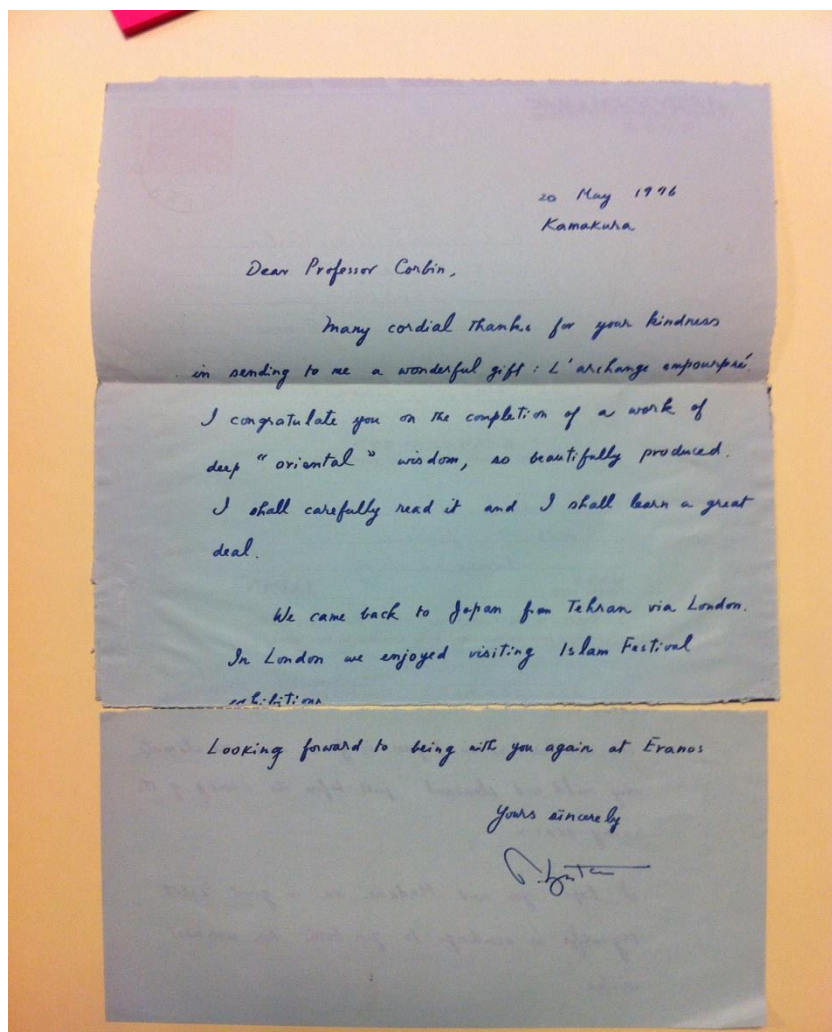 20 May 1976
Kamakura
Dear Professor Corbin,
Many cordial thanks for your kindness
in sending to me a wonderful gift : L'archange empourpré.
I congratulate you on the completion of a work of
deep "oriental" wisdom, so beautifully produced.
I shall carefully read it and I shall learn a great
deal.
We came back to Japan from Tehran via London.
In London we enjoyed visiting Islam Festival
exhibitions
Looking forward to being with you again at Eranos
Yours sincerely